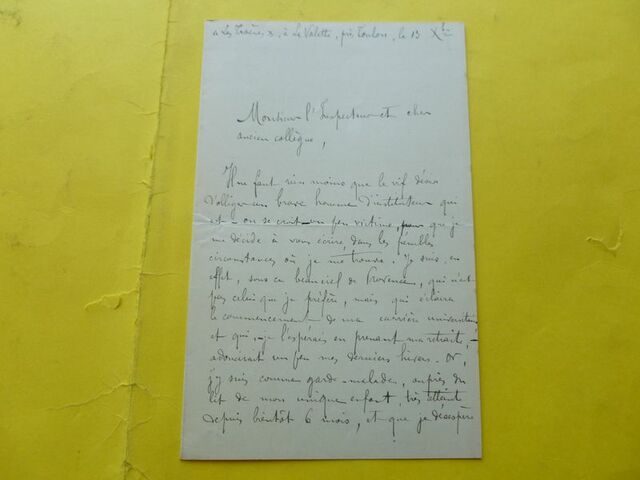 "Les Troènes", à La Valette, près Toulon, le 13 Xbre
Monsieur l'Inspecteur et cher
ancien collègue,
Il ne faut rien moins que le vif désir
d'obliger un brave homme d'instituteur qui
est - ou se croit - un peu victime, pour que je
me décide à vous écrire, dans les pénibles
circonstances où je me trouve. Je suis, en
effet, sous ce beau ciel de Provence, qui n'est
pas celui que je préfère, mais qui éclaira
le commencement de ma carrière universitaire
et qui, - je l'espérais en prenant ma retraite, -
adoucirait un peu mes derniers hivers. Or,
j'y suis comme garde-malade, auprès du
lit de mon unique enfant, très atteint
depuis bientôt 6 mois, et que je désespère